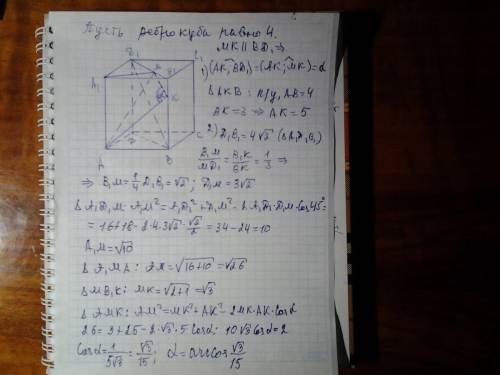 Пусть ребро куба равно 4.
MK || BD₁ ⇒
1) (AK; BD₁) = (AK; MK) = α
Δ AKB: п/у, AB = 4
BK = 3 ⇒ AK = 5
2) D₁B₁ = 4√2 (Δ A₁D₁B₁)
B₁M/MD₁ = B₁K/BK = 1/3 ⇒
⇒ B₁M = 1/4 D₁B₁ = √2; D₁M = 3√2
Δ A₁D₁M: A₁M² = A₁D₁² + D₁M² - 2 A₁D₁·D₁M·cos 45° =
= 16+18 - 2·4·3√2·√2/2 = 34-24 = 10
A₁M = √10
Δ A₁MA: AM = √16+10 = √26
Δ MB₁K: MK = √2+1 = √3
Δ AMK: AM² = MK² + AK² - 2MK·AK·cos α
26 = 3+25-2·√3·5 cos α; 10√3 cos α = 2
cos α = 1/5√3 = √3/15; α = arccos √3/15
A₁
D₁
C₁
B₁
M
K
A
D
B
C